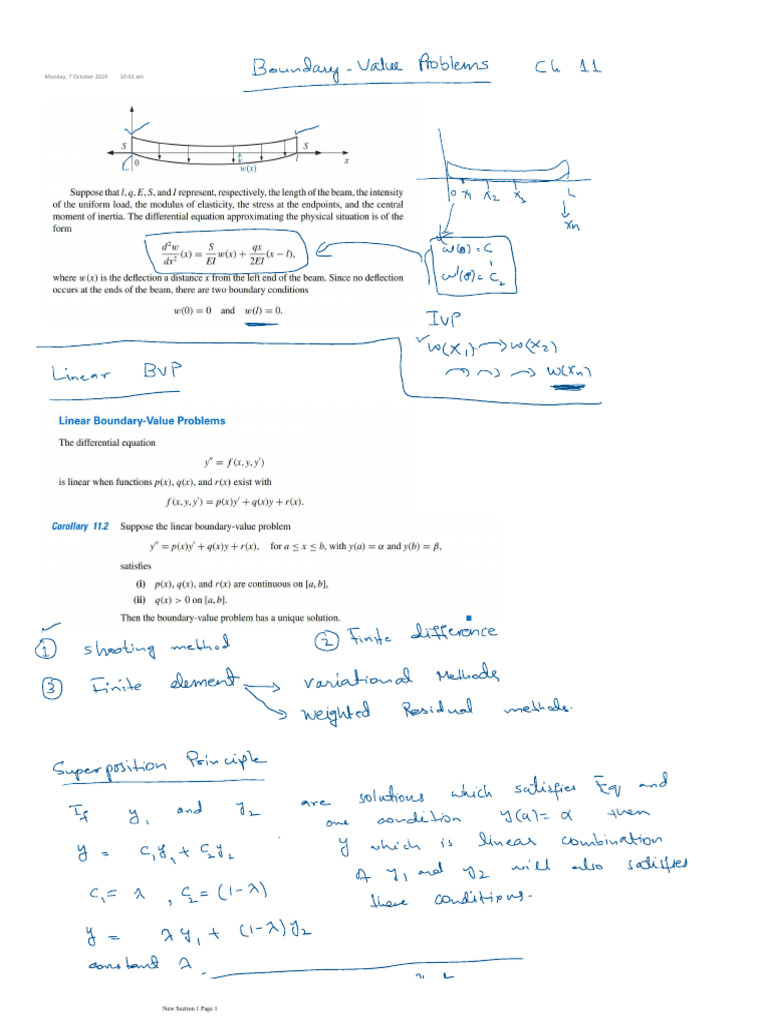 Boundary-Value Problems Ch 11
Monday, 7 October 2024 10:43 am
S S
0 l x
w(x)
0 x₁ x₂ x₃ L
xn
Suppose that l, q, E, S, and I represent, respectively, the length of the beam, the intensity
of the uniform load, the modulus of elasticity, the stress at the endpoints, and the central
moment of inertia. The differential equation approximating the physical situation is of the
form
d²w/dx² (x) = S/EI w(x) + qx/2EI (x − l),
w(0) = C₁
w'(0) = C₂
where w(x) is the deflection a distance x from the left end of the beam. Since no deflection
occurs at the ends of the beam, there are two boundary conditions
w(0) = 0 and w(l) = 0.
IVP
w(x₁) → w(x₂)
→ → → w(xn)
Linear BVP
Linear Boundary-Value Problems
The differential equation
y″ = f(x, y, y′)
is linear when functions p(x), q(x), and r(x) exist with
f(x, y, y′) = p(x)y′ + q(x)y + r(x).
Corollary 11.2 Suppose the linear boundary-value problem
y″ = p(x)y′ + q(x)y + r(x), for a ≤ x ≤ b, with y(a) = α and y(b) = β,
satisfies
(i) p(x), q(x), and r(x) are continuous on [a, b],
(ii) q(x) > 0 on [a, b].
Then the boundary-value problem has a unique solution.
① Shooting method ② Finite difference
③ Finite element → variational Methods
→ Weighted Residual methods.
Superposition Principle
If y₁ and y₂ are solutions which satisfies Eq and
one condition y(a) = α then
y = c₁y₁ + c₂y₂ y which is linear combination
of y₁ and y₂ will also satisfies
c₁ = λ , c₂ = (1-λ) these conditions.
y = λ y₁ + (1-λ) y₂
constant λ.
New Section 1 Page 1